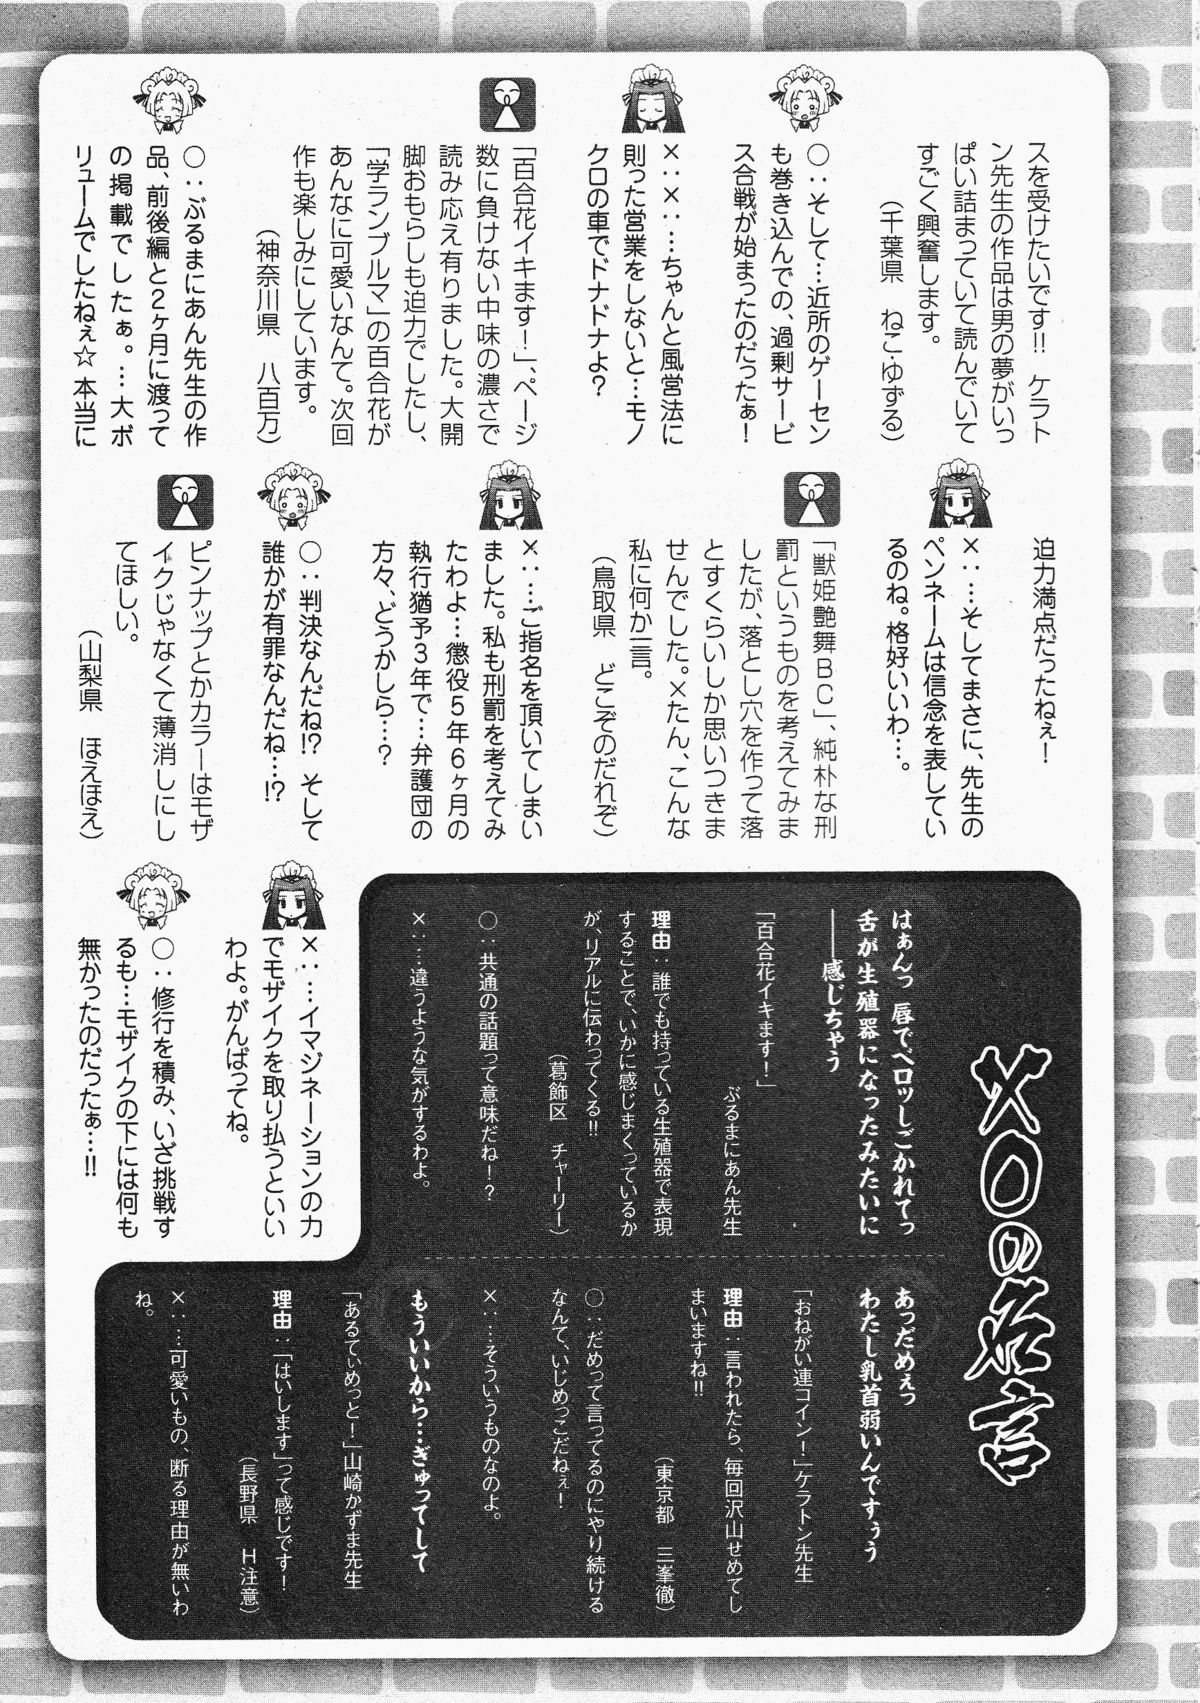 スを受けたいです!! ケラト
ン先生の作品は男の夢がいっ
ぱい詰まっていて読んでいて
すごく興奮します。
（千葉県　ねこ・ゆずる）
○：そして…近所のゲーセン
も巻き込んでの、過剰サービ
ス合戦が始まったのだったぁ！
×：×：…ちゃんと風営法に
則った営業をしないと…モノ
クロの車でドナドナよ？
「百合花イキます！」、ページ
数に負けない中味の濃さで
読み応え有りました。大開
脚おもらしも迫力でしたし、
「学ランブルマ」の百合花が
あんなに可愛いなんて。次回
作も楽しみにしています。
（神奈川県　八百万）
○：ぶるまにあん先生の作
品、前後編と２ヶ月に渡って
の掲載でしたぁ。…大ボ
リュームでしたねぇ☆ 本当に
迫力満点だったねぇ！
×：…そしてまさに、先生の
ペンネームは信念を表してい
るのね。格好いいわ…。
「獣姫艶舞ＢＣ」、純朴な刑
罰というものを考えてみま
したが、落とし穴を作って落
とすくらいしか思いつきま
せんでした。×たん、こんな
私に何か一言。
（鳥取県　どこぞのだれぞ）
×：…ご指名を頂いてしまい
ました。私も刑罰を考えてみ
たわよ…懲役５年６ヶ月の
執行猶予３年で…弁護団の
方々、どうかしら…？
○：判決なんだね!? そして
誰かが有罪なんだね…!?
ピンナップとかカラーはモザ
イクじゃなくて薄消しにし
てほしい。
（山梨県　ほえほえ）
×：…イマジネーションの力
でモザイクを取り払うといい
わよ。がんばってね。
○：修行を積み、いざ挑戦す
るも…モザイクの下には何も
無かったのだったぁ…!!
XOの名言
はぁんっ 唇でペロッしごかれてっ
舌が生殖器になったみたいに
――感じちゃう
ぶるまにあん先生
「百合花イキます！」
理由：誰でも持っている生殖器で表現
することで、いかに感じまくっているか
が、リアルに伝わってくる!!
（葛飾区　チャーリー）
○：共通の話題って意味だね！？
×：…違うような気がするわよ。
あっだめぇっ
わたし乳首弱いんですぅう
「おねがい連コイン！」ケラトン先生
理由：言われたら、毎回沢山せめてし
まいますね!!
（東京都　三峯徹）
○：だめって言ってるのにやり続ける
なんて、いじめっこだねぇ！
×：…そういうものなのよ。
もういいから…ぎゅってして
「あるてぃめっと！」山崎かずま先生
理由：「はいします」って感じです！
（長野県　Ｈ注意）
×：…可愛いもの、断る理由が無いわ
ね。